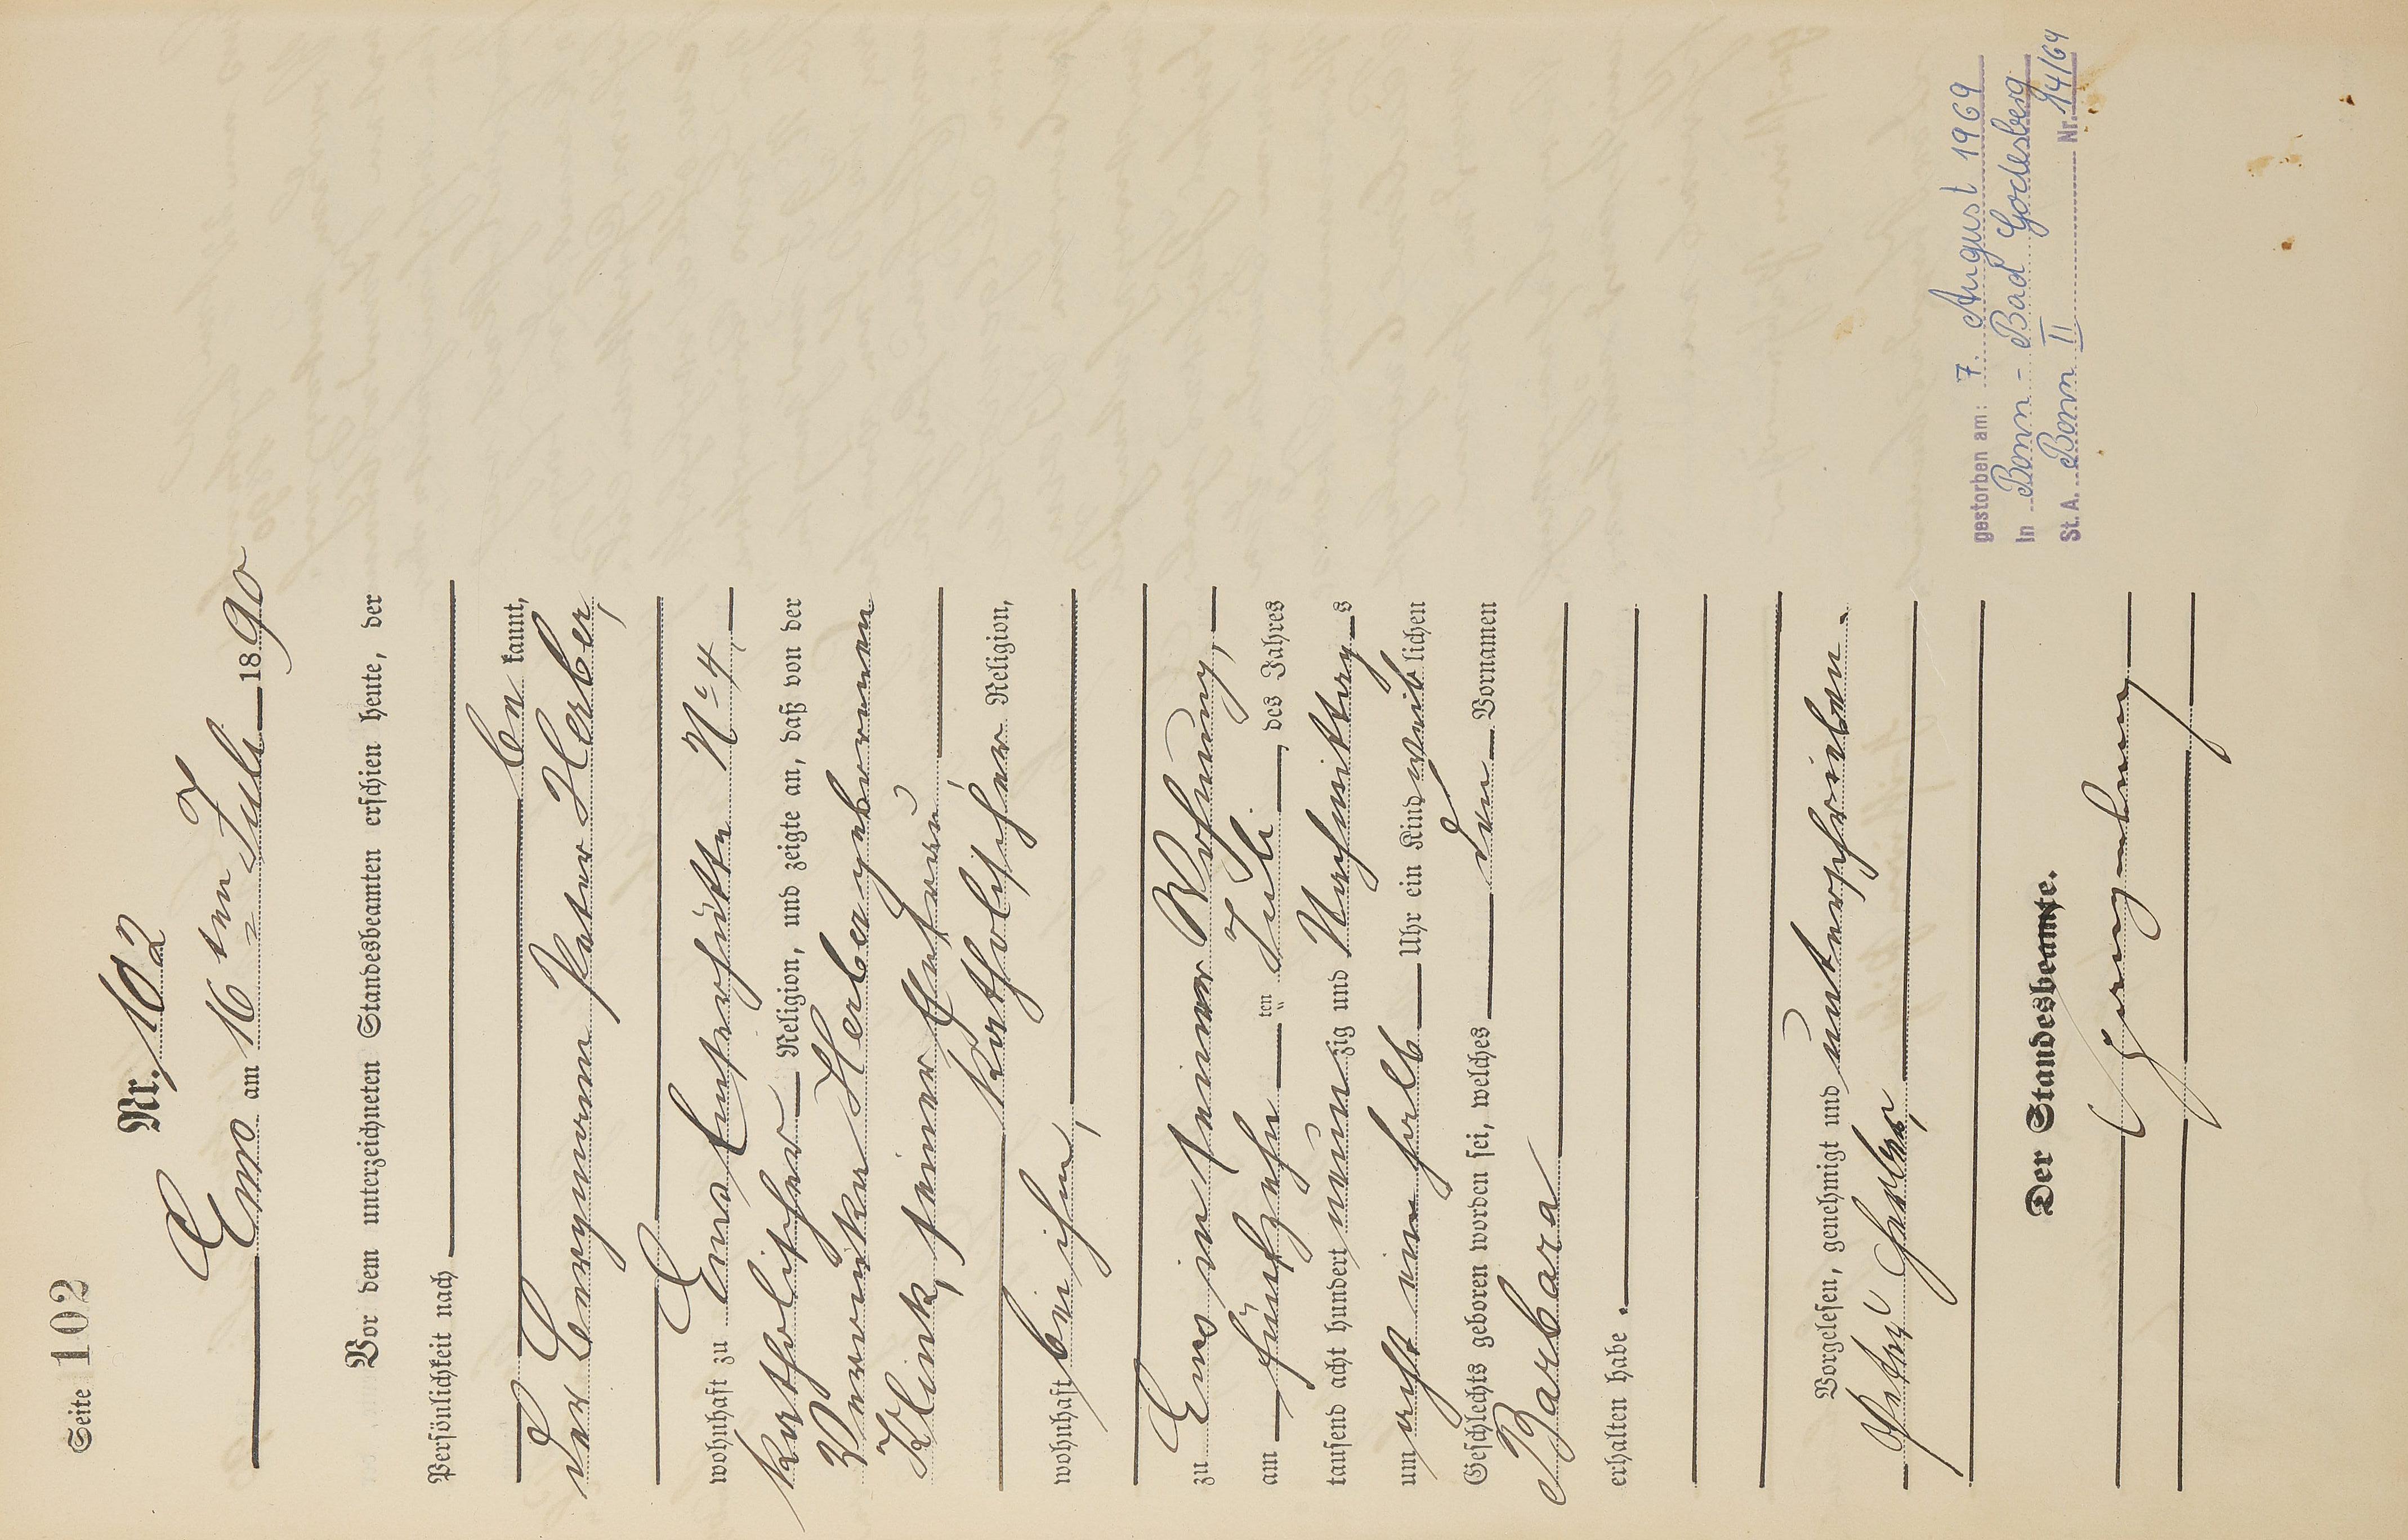 Seite 102
Nr. 102
Ems am 16 ten Juli 1890
Vor dem unterzeichneten Standesbeamten erschien heute, der
Persönlichkeit nach
be kannt,
der Bergmann Peter Herber,
wohnhaft zu Ems, Emserhütte No 4,
katholischer Religion, und zeigte an, daß von der
Veronika Herber gebornen
Klink, seiner Ehefrau
katholischer Religion,
wohnhaft bei ihm,
zu Ems in seiner Wohnung,
am fünfzehn ten Juli, des Jahres
tausend acht hundert neun zig und Nachmittags
um acht ein halb Uhr ein Kind weib lichen
Geschlechts geboren worden sei, welches den Vornamen
Barbara
erhalten habe.
Vorgelesen, genehmigt und unterschrieben.
Peter Herber,
Der Standesbeamte.
gestorben am: 7. August 1969
In Bonn - Bad Godesberg
St. A. Bonn II Nr. 94/69